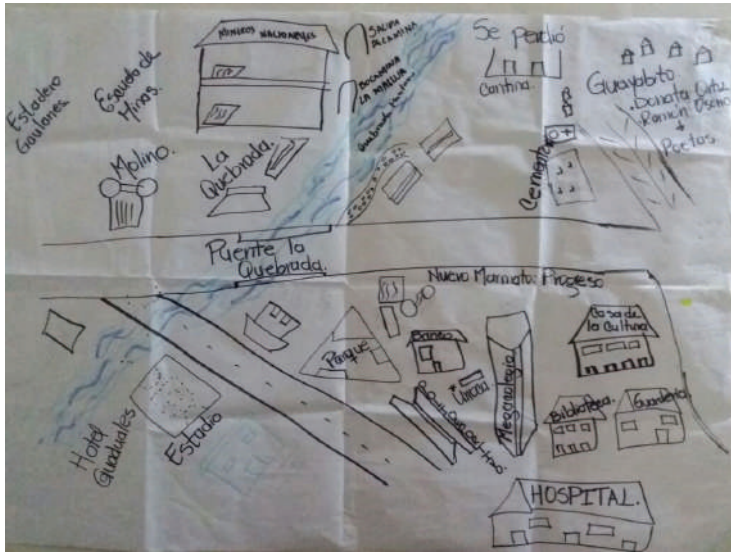 Estadero
Gavilanes
Escuela de
Minas.
MINEROS NACIONALES
SALIDA
DE LA MINA
BOCAMINA
LA MARUJA
Quebrada
Se perdió
Cantina.
Guayabito
Donato Ortiz
Ramón Osorio
+
Poetas
Molino.
La
Quebrada.
Cementerio
Puente la
Quebrada.
Nuevo Marmato: Progreso
Parque
Banco
Casa de
la Cultura
Megacolegio
Biblioteca.
Guardería.
Hotel
Guaduales
Estadio
HOSPITAL.